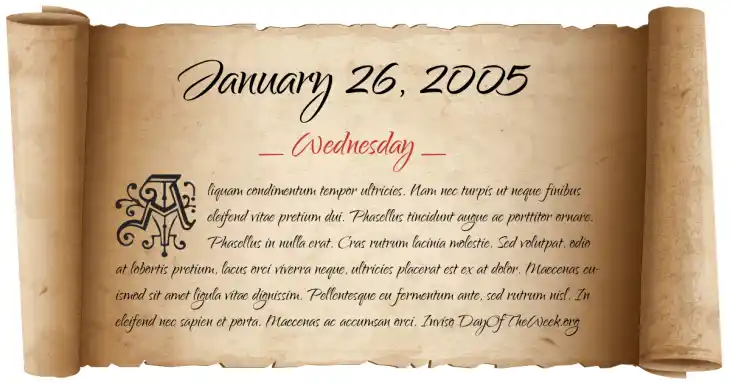 January 26, 2005
_ Wednesday _
Aliquam condimentum tempor ultricies. Nam nec turpis ut neque finibus
eleifend vitae pretium dui. Phasellus tincidunt augue ac porttitor ornare.
Phasellus in nulla erat. Cras rutrum lacinia molestie. Sed volutpat, odio
at lobortis pretium, lacus orci viverra neque, ultricies placerat est ex at dolor. Maecenas eu-
ismod sit amet ligula vitae dignissim. Pellentesque eu fermentum ante, sed rutrum nisl. In
eleifend nec sapien et porta. Maecenas ac accumsan orci. Inviso DayOfTheWeek.org